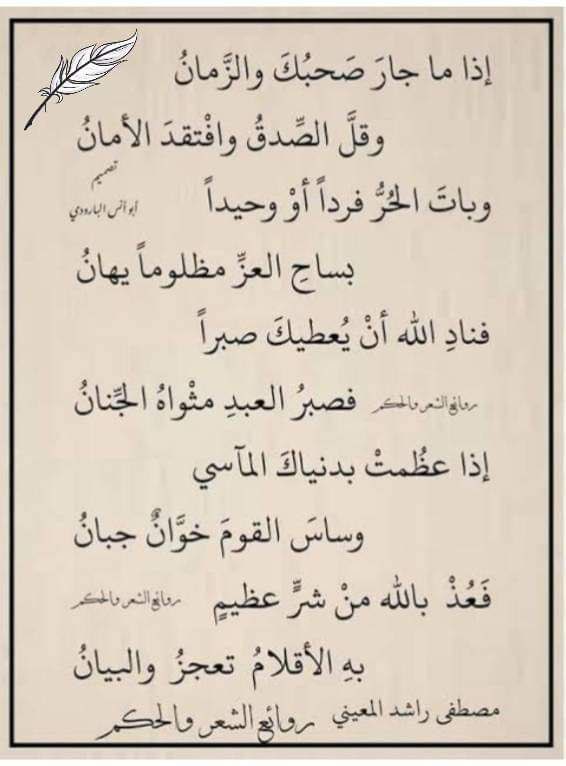 إذا ما جارَ صَحبُكَ والزَّمانُ
وقلَّ الصِّدقُ وافْتقدَ الأمانُ
تصميم
أبو أنس البارودي
وباتَ الحُرُّ فرداً أوْ وحيداً
بساحِ العزِّ مظلوماً يهانُ
فنادِ الله أنْ يُعطيكَ صبراً
فصبرُ العبدِ مثْواهُ الجِّنانُ
روائع الشعر والحكم
إذا عظُمتْ بدنياكَ المآسي
وساسَ القومَ خوَّانٌ جبانُ
فَعُذْ بالله منْ شرٍّ عظيمٍ
روائع الشعر والحكم
بهِ الأقلامُ تعجزُ والبيانُ
مصطفى راشد المعيني
روائع الشعر والحكم